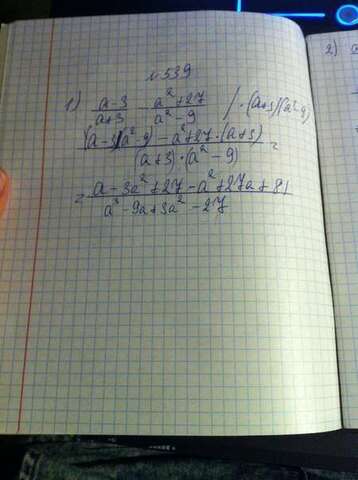 №539
1) a-3/a+3 - a²+27/a²-9 / ·(a+3)(a²-9)
(a-3)(a²-9)-a²+27·(a+3)/(a+3)·(a²-9) =
= a-3a²+27-a²+27a+81/a³-9a+3a²-27
2)